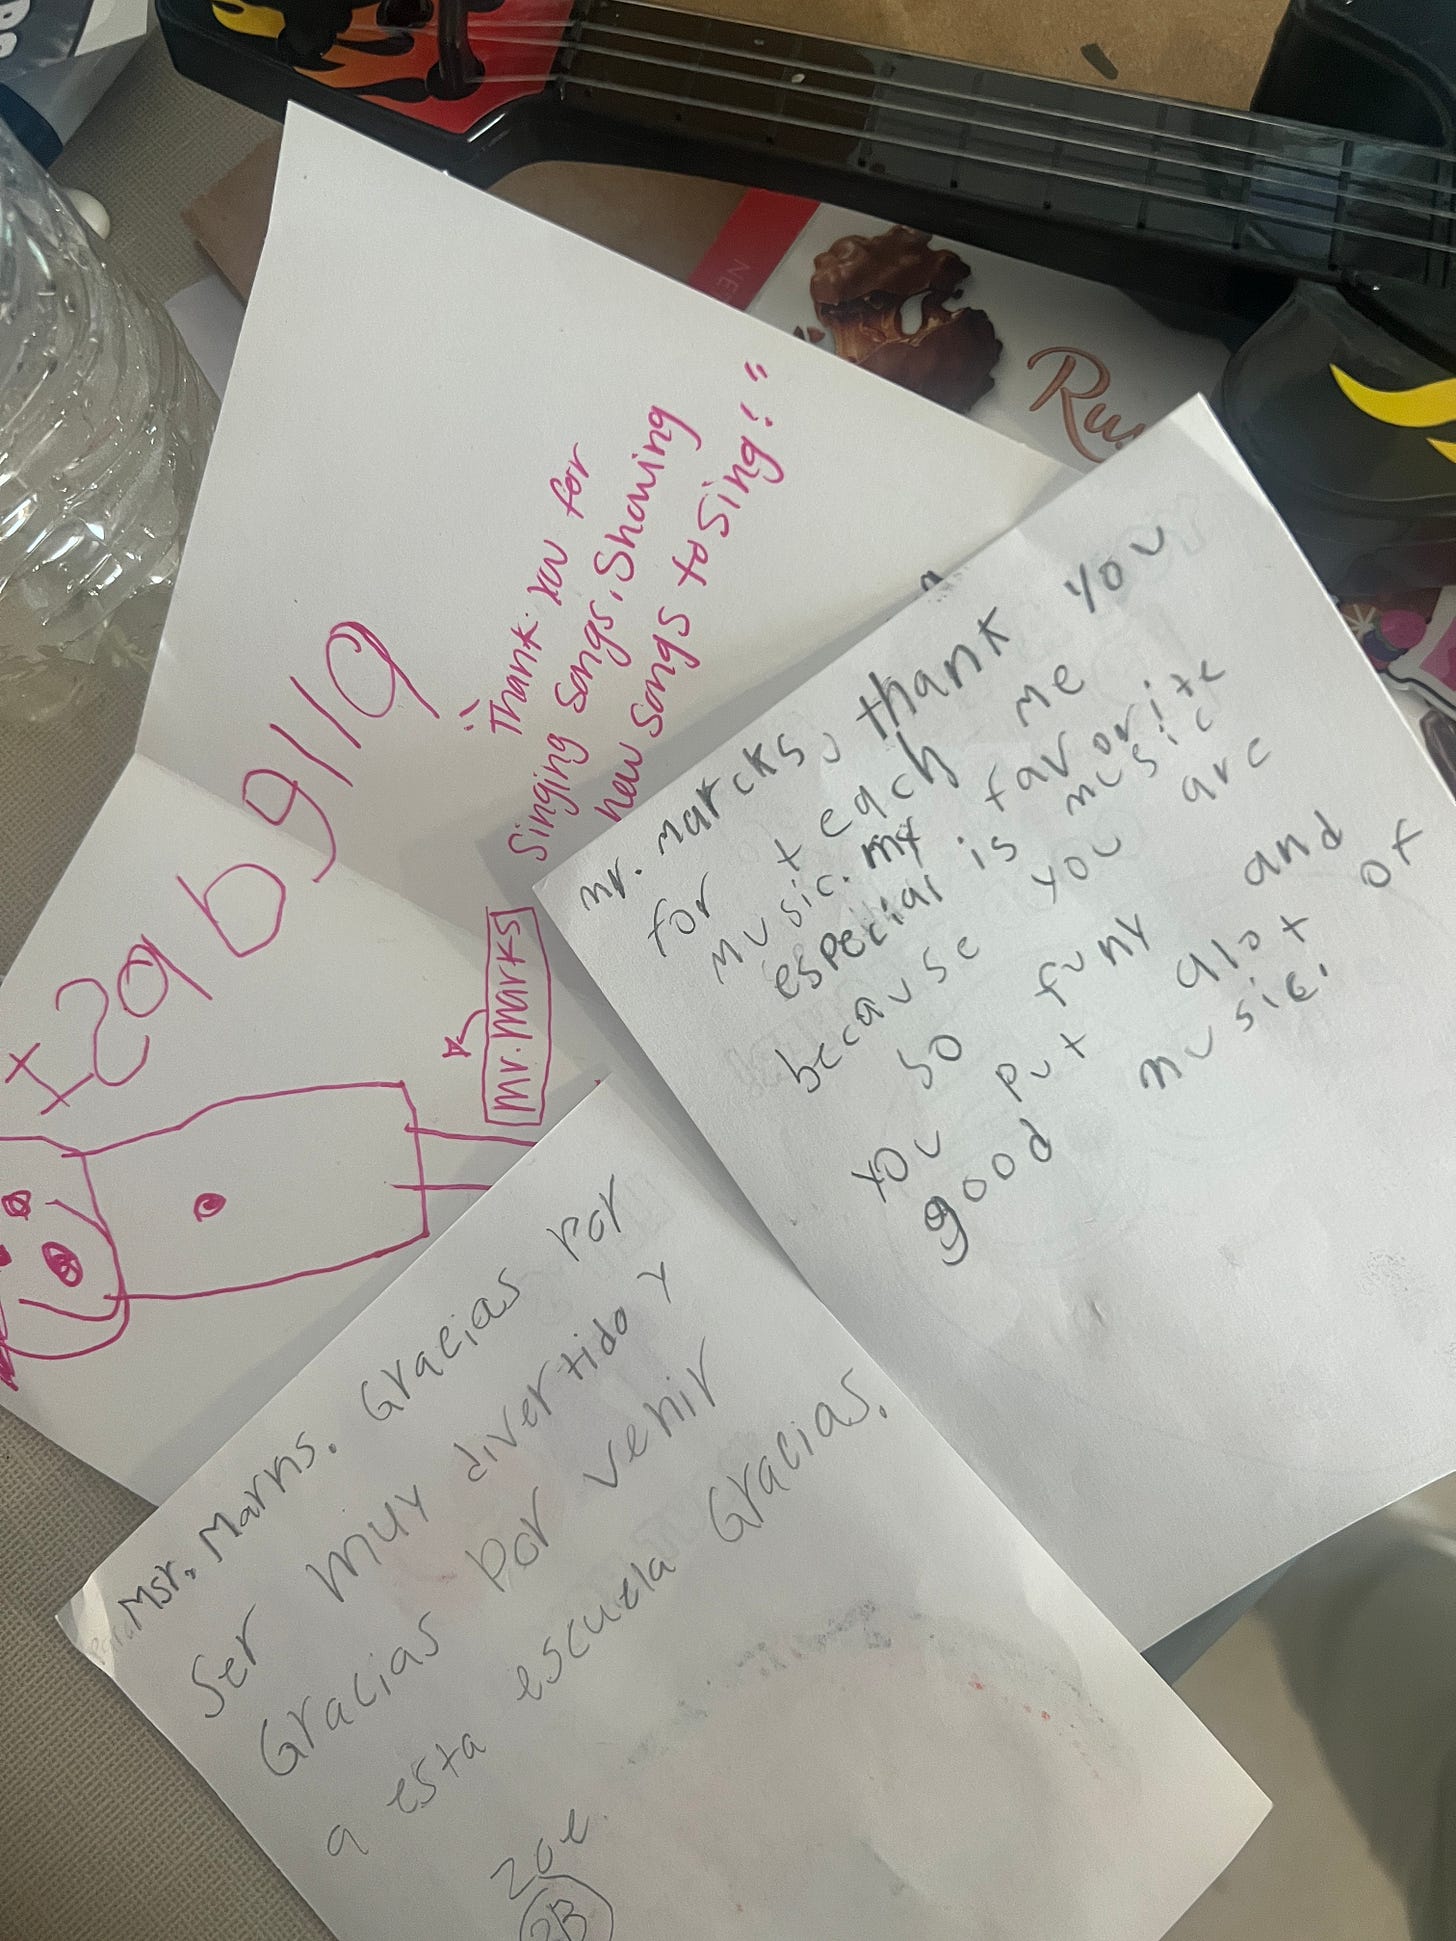 Izabella
"Thank you for
singing songs, Showing
new songs to sing!"
mr.marks
mr. marcks, thank you
for teach me
music. my favorite
especial is music
because you are
so funy and
you put alot of
good music.
Para: Msr. Marns. Gracias por
Ser muy divertido y
Gracias por venir
a esta escuela Gracias.
Zoe
2B